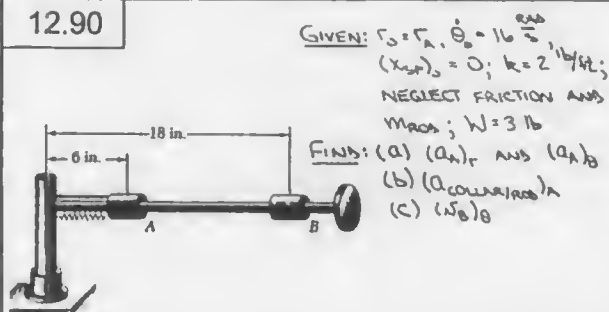 12.90
GIVEN: r₀ = r_A, θ̇₀ = 16 RAD/S,
(X_SP)₀ = 0; k = 2 lb/ft;
NEGLECT FRICTION AND
m_ROD; W = 3 lb
FIND: (a) (a_A)_r AND (a_A)_θ
(b) (a_COLLAR/ROD)_A
(c) (v_B)_θ
18 in.
6 in.
A
B